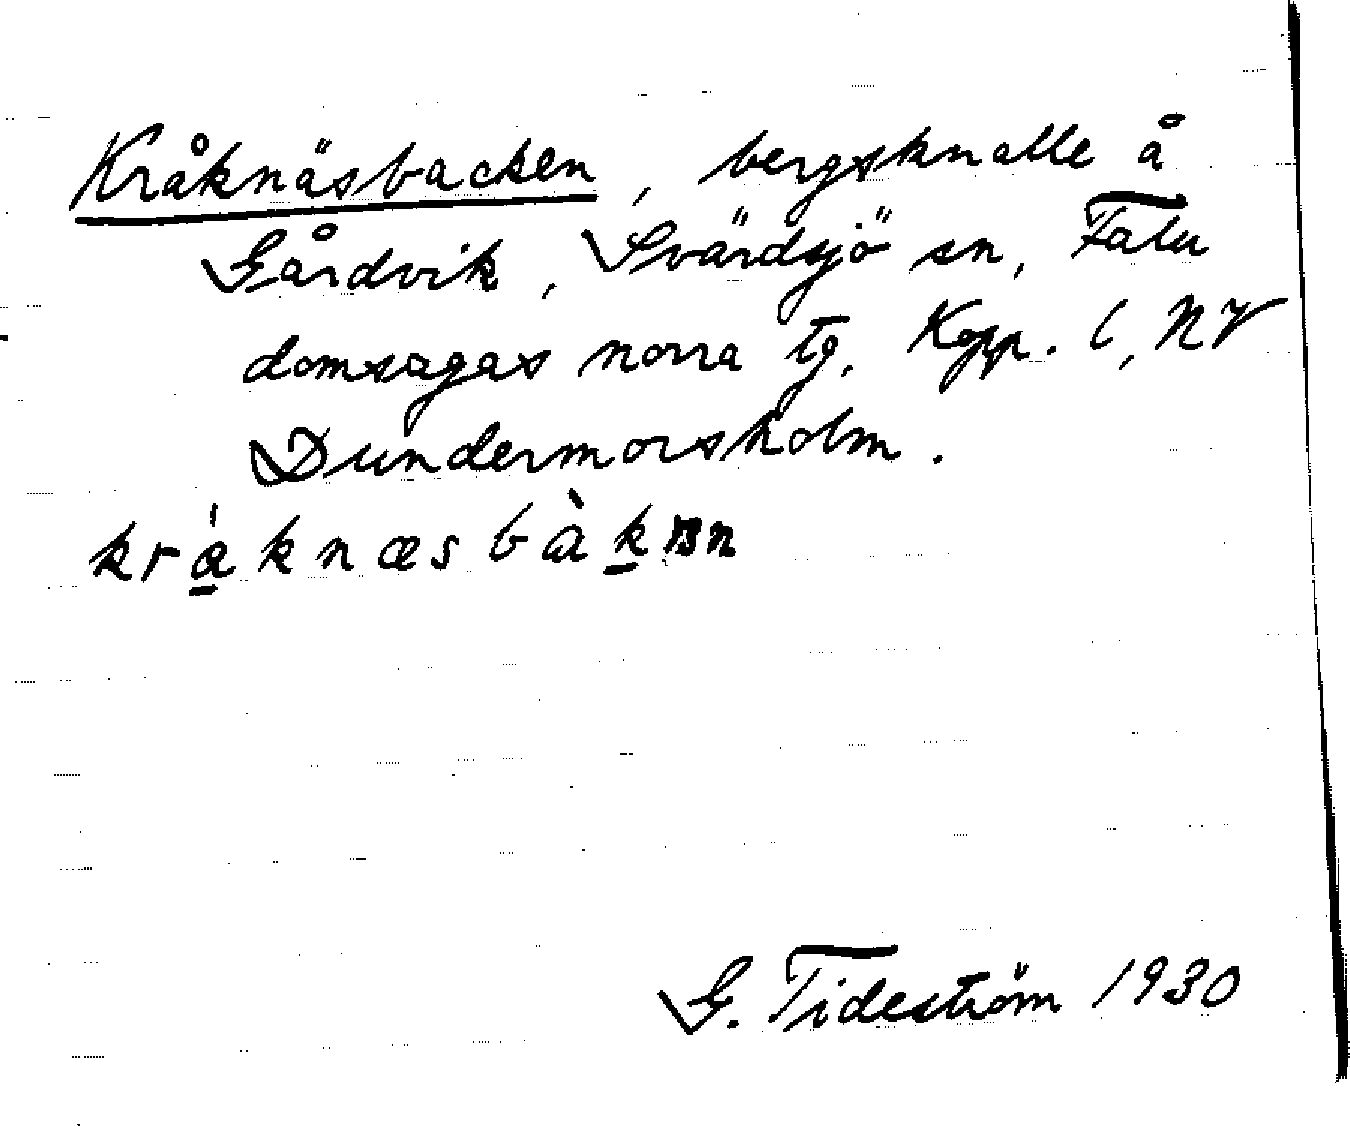 Kråknäsbacken, bergsknalle å
Gårdvik, Svärdsjö sn, Falu
domsagas norra tg. Kopp. l, NV
Dundermorsholm.
kråknæsbàk
G. Tideström 1930